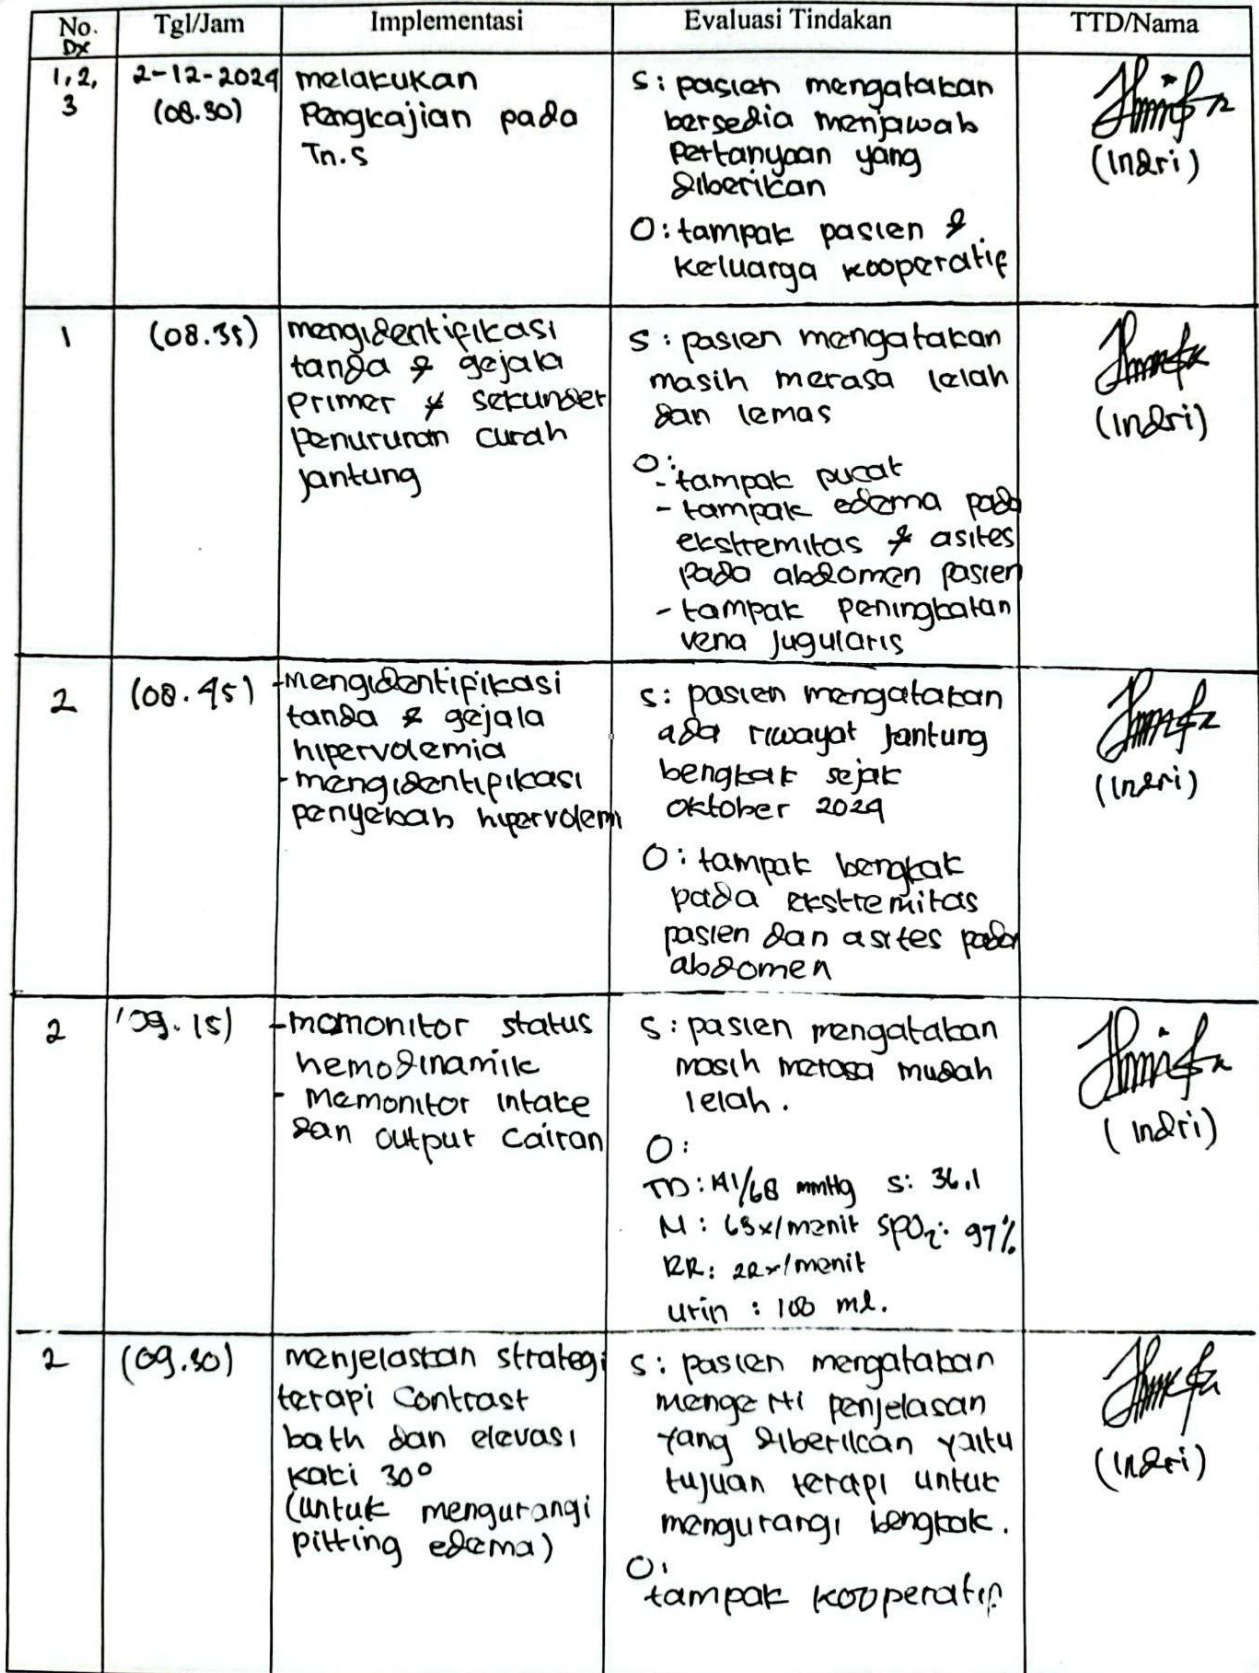 No. Dx
Tgl/Jam
Implementasi
Evaluasi Tindakan
TTD/Nama
1,2,
3
2-12-2024
(08.30)
melakukan
Pengkajian pada
Tn.S
S: pasien mengatakan
bersedia menjawab
pertanyaan yang
diberikan
O: tampak pasien &
keluarga kooperatif
(Indri)
1
(08.35)
mengidentifikasi
tanda & gejala
primer & sekunder
penurunan curah
jantung
S: pasien mengatakan
masih merasa lelah
dan lemas
O:
- tampak pucat
- tampak edema pada
ekstremitas & asites
pada abdomen pasien
- tampak peningkatan
vena jugularis
(Indri)
2
(08.45)
- mengidentifikasi
tanda & gejala
hipervolemia
- mengidentifikasi
penyebab hipervolem
S: pasien mengatakan
ada riwayat jantung
bengkak sejak
oktober 2024
O: tampak bengkak
pada ekstremitas
pasien dan asites pada
abdomen
(Indri)
2
(09.15)
- memonitor status
hemodinamik
- memonitor intake
dan output cairan
S: pasien mengatakan
masih merasa mudah
lelah.
O:
TD: 141/68 mmHg S: 36.1
N: 65x/menit SPO2: 97%
RR: 22x/menit
urin : 100 ml.
(Indri)
2
(09.30)
menjelaskan strategi
terapi Contrast
bath dan elevasi
kaki 30°
(untuk mengurangi
pitting edema)
S: pasien mengatakan
mengerti penjelasan
yang diberikan yaitu
tujuan terapi untuk
mengurangi bengkak.
O:
tampak kooperatif
(Indri)